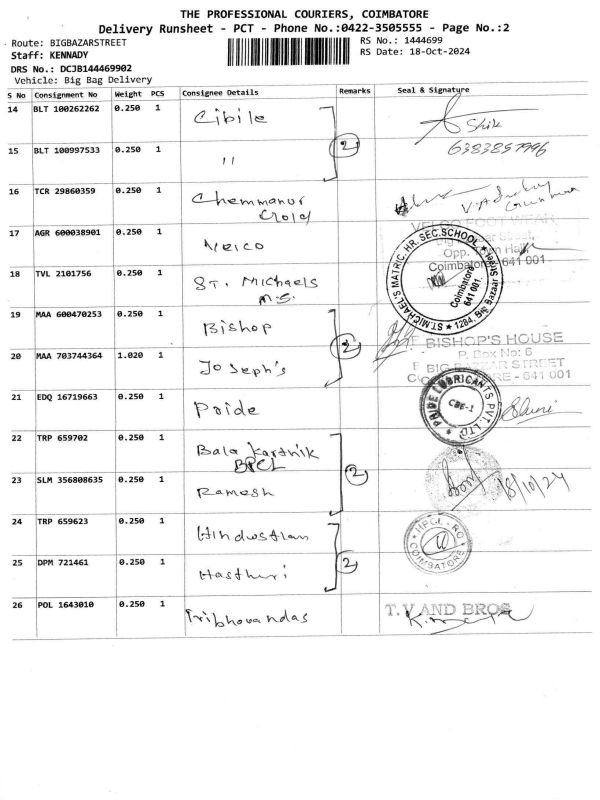 THE PROFESSIONAL COURIERS, COIMBATORE
Delivery Runsheet - PCT - Phone No.:0422-3505555 - Page No.:2
Route: BIGBAZARSTREET
RS No.: 1444699
Staff: KENNADY
RS Date: 18-Oct-2024
DRS No.: DCJB144469902
Vehicle: Big Bag Delivery
S No Consignment No Weight PCS Consignee Details Remarks Seal & Signature
14 BLT 100262262 0.250 1 Cibile
2
Shik
6383857996
15 BLT 100997533 0.250 1 "
16 TCR 29860359 0.250 1 Chemmanur
Gold
17 AGR 600038901 0.250 1 Velco
VELCO FOOTWEAR
Opp. Town Hall
Coimbatore 641 001
18 TVL 2101756 0.250 1 ST. Michaels
M.S.
ST. MICHAEL'S MATRIC. HR. SEC. SCHOOL * 1284, Big Bazaar Street
Coimbatore 641 001.
19 MAA 600470253 0.250 1 Bishop
2
BISHOP'S HOUSE
P. Box No: 6
BIG BAZAAR STREET
COIMBATORE - 641 001
20 MAA 703744364 1.020 1 Joseph's
21 EDQ 16719663 0.250 1 Pride
PRIDE LUBRICANTS PVT. LTD
CBE-1
22 TRP 659702 0.250 1 Bala Karthik
BPCL
2
18/10/24
23 SLM 356808635 0.250 1 Ramesh
24 TRP 659623 0.250 1 Hindustlan
2
HPCL - RO
COIMBATORE
25 DPM 721461 0.250 1 Hasthuri
26 POL 1643010 0.250 1 Tribhovandas
T.V AND BROS